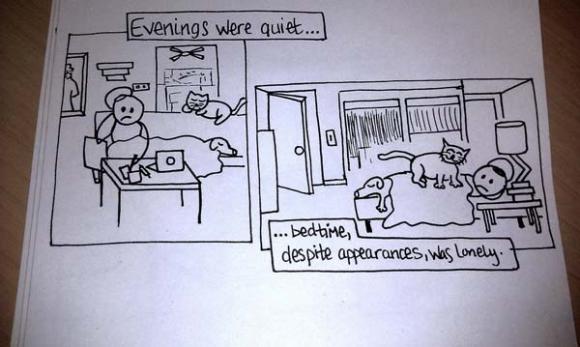 Evenings were quiet...
...bedtime,
despite appearances, was lonely.